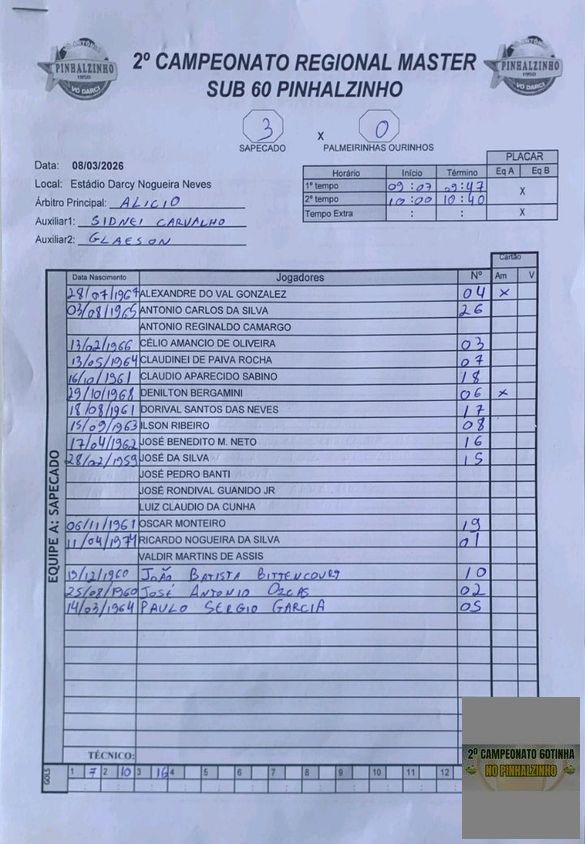 PINHALZINHO
1950
VO DARCI
2º CAMPEONATO REGIONAL MASTER
SUB 60 PINHALZINHO
PINHALZINHO
1950
VO DARCI
3 x 0
SAPECADO PALMEIRINHAS OURINHOS
Data: 08/03/2026
Local: Estádio Darcy Nogueira Neves
Árbitro Principal: ALICIO
Auxiliar1: SIDNEI CARVALHO
Auxiliar2: GLAESON
PLACAR
Horário Início Término Eq A Eq B
1º tempo 09:07 09:47 X
2º tempo 10:00 10:40
Tempo Extra : : X
Cartão
Data Nascimento Jogadores Nº Am V
28/07/1967 ALEXANDRE DO VAL GONZALEZ 04 x
03/08/1965 ANTONIO CARLOS DA SILVA 26
ANTONIO REGINALDO CAMARGO
13/02/1966 CÉLIO AMANCIO DE OLIVEIRA 03
13/05/1964 CLAUDINEI DE PAIVA ROCHA 07
16/10/1961 CLAUDIO APARECIDO SABINO 18
29/10/1968 DENILTON BERGAMINI 06 x
18/08/1961 DORIVAL SANTOS DAS NEVES 17
15/09/1963 ILSON RIBEIRO 08
17/04/1962 JOSÉ BENEDITO M. NETO 16
28/02/1959 JOSÉ DA SILVA 15
JOSÉ PEDRO BANTI
JOSÉ RONDIVAL GUANIDO JR
LUIZ CLAUDIO DA CUNHA
06/11/1961 OSCAR MONTEIRO 19
11/04/1971 RICARDO NOGUEIRA DA SILVA 01
VALDIR MARTINS DE ASSIS
19/12/1960 JOÃO BATISTA BITTENCOURT 10
25/08/1960 JOSÉ ANTONIO 02
14/03/1964 PAULO SERGIO GARCIA 05
EQUIPE A: SAPECADO
TÉCNICO:
GOLS 1 7 2 10 3 16 4 5 6 7 8 9 10 11 12
2º CAMPEONATO GOTINHA
NO PINHALZINHO